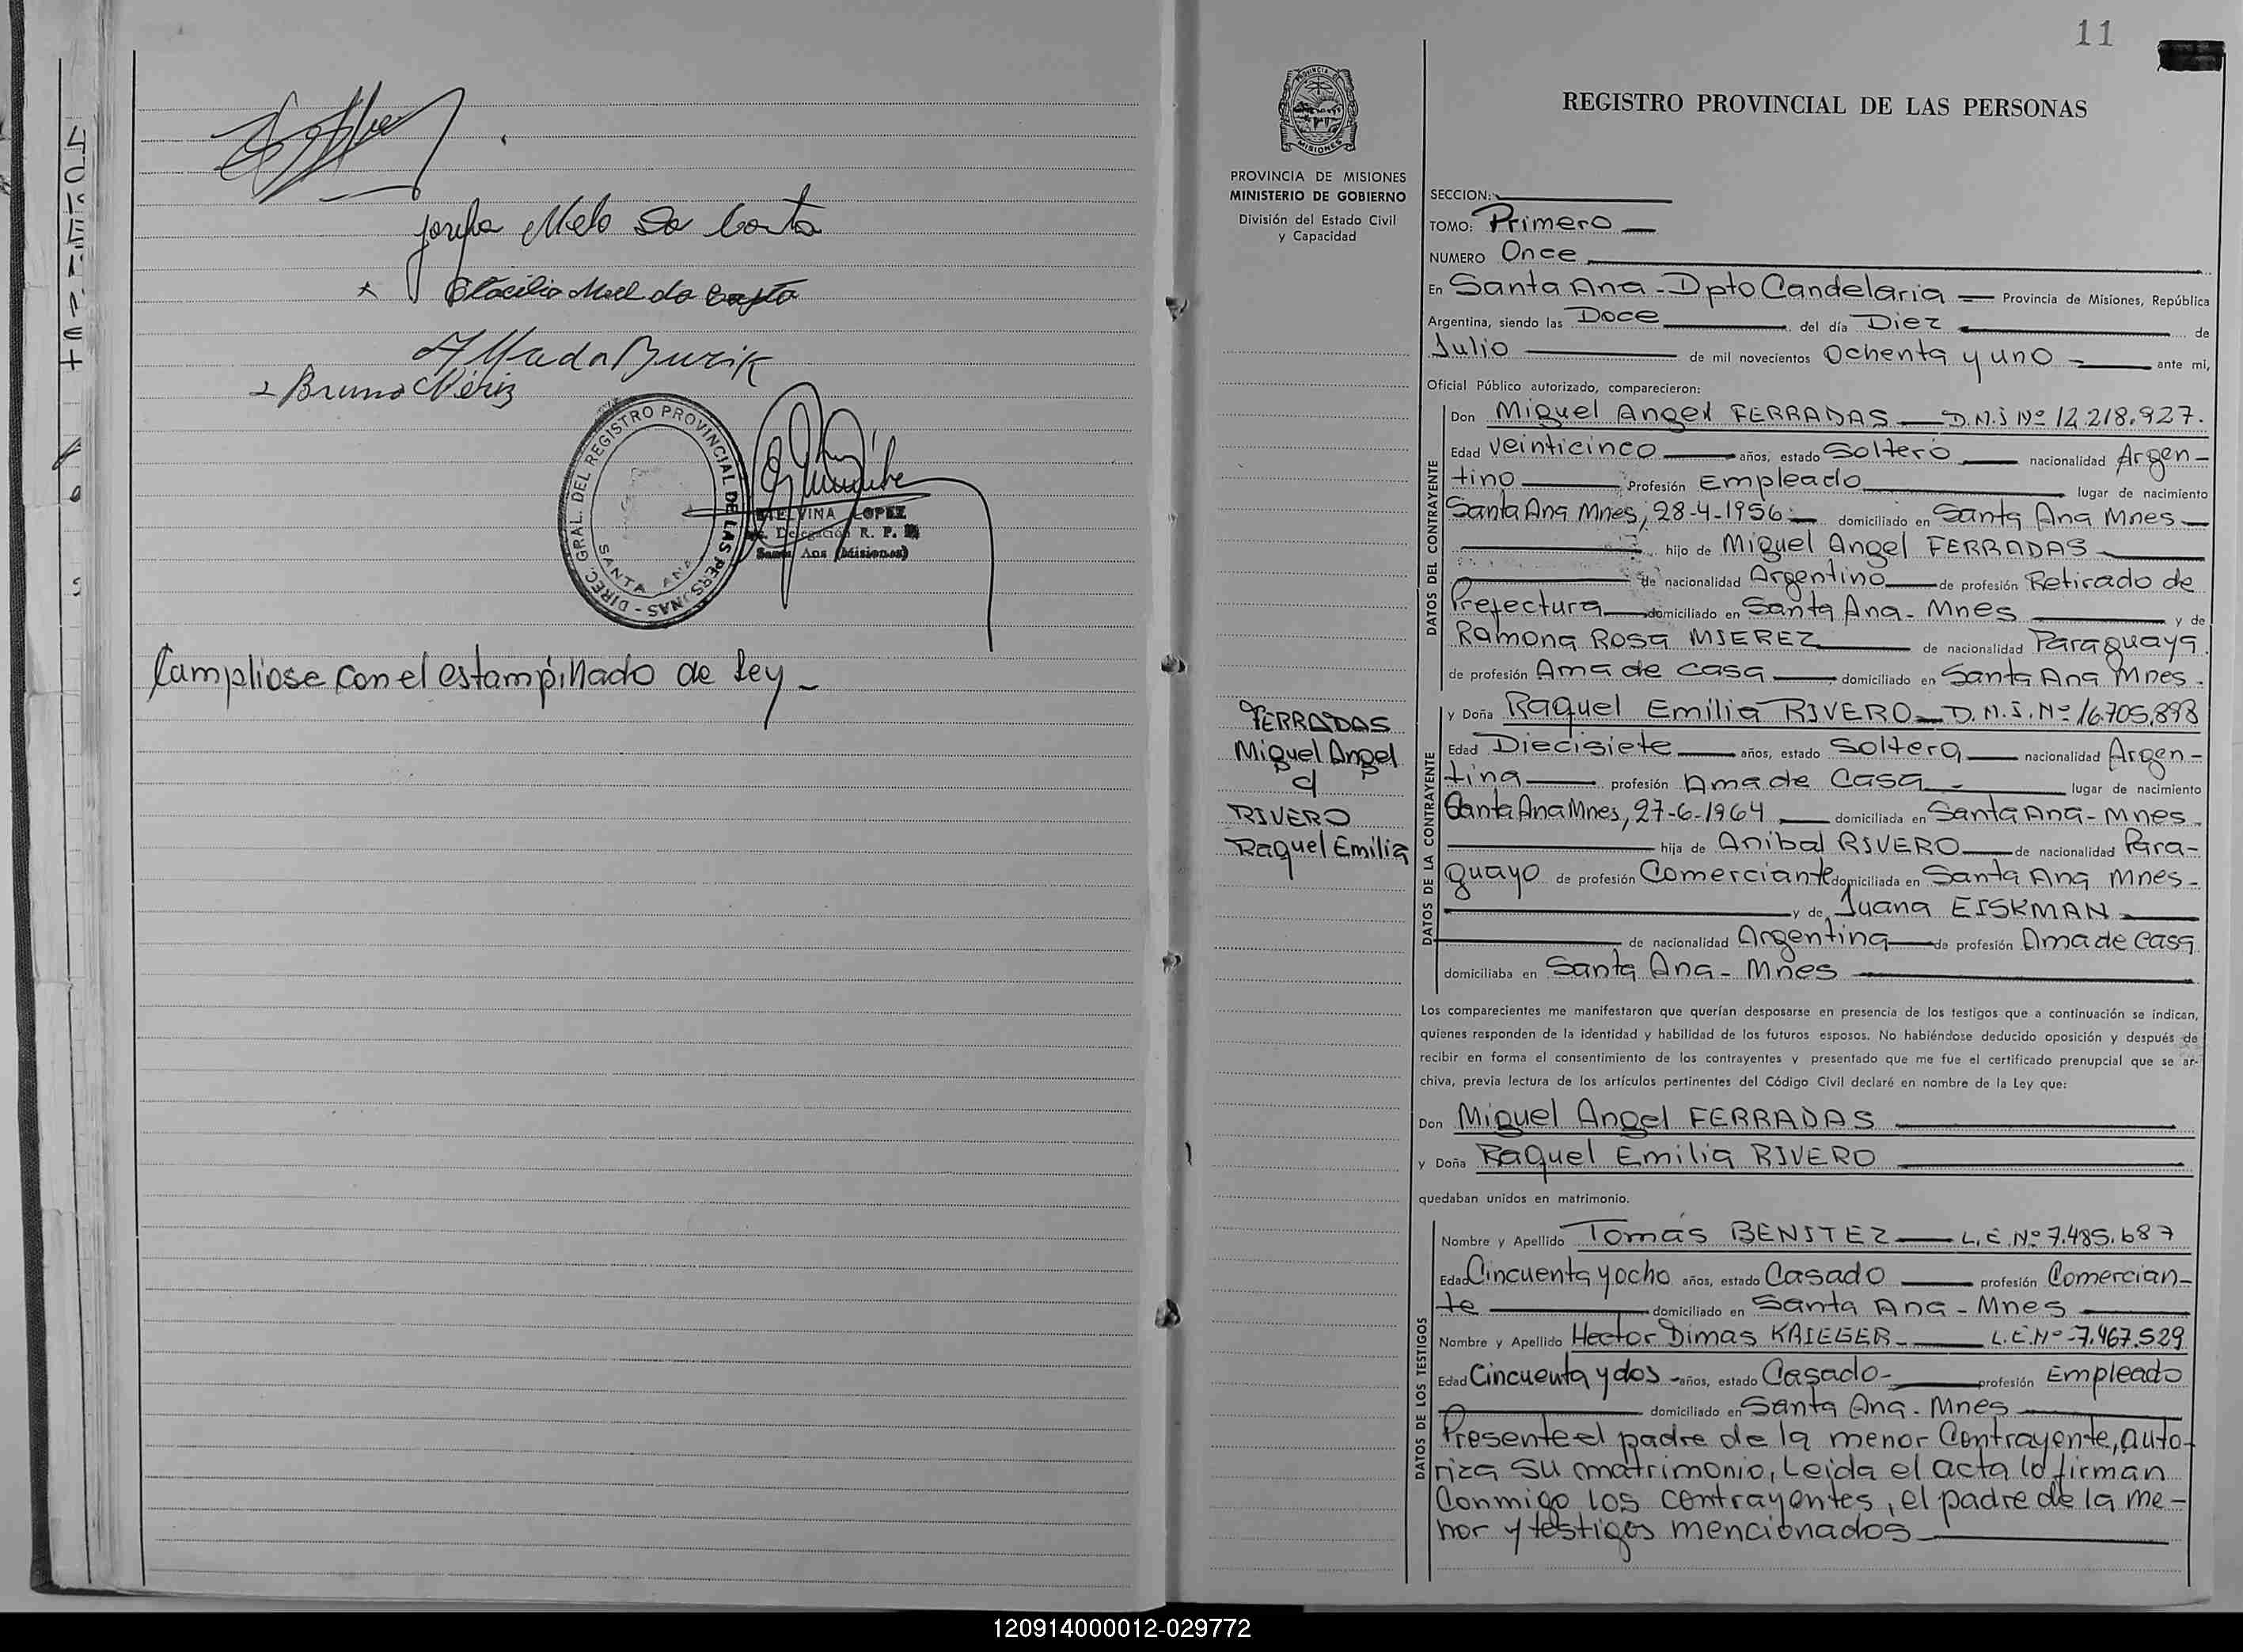 Josefa Melo Da Costa
Bruno Neriz
DIREC. GRAL. DEL REGISTRO PROVINCIAL DE LAS PERSONAS -
SANTA ANA
ELVINA LOPEZ
Delegación R. P.
Santa Ana (Misiones)
Campliose con el estampillado de Ley -
11
PROVINCIA DE
MISIONES
REGISTRO PROVINCIAL DE LAS PERSONAS
PROVINCIA DE MISIONES
MINISTERIO DE GOBIERNO
División del Estado Civil
y Capacidad
SECCION:
TOMO: Primero
NUMERO Once
En Santa Ana - Dpto Candelaria Provincia de Misiones, República
Argentina, siendo las Doce del día Diez de
Julio de mil novecientos Ochenta y uno ante mi,
Oficial Público autorizado, comparecieron:
DATOS DEL CONTRAYENTE
Don Miguel Angel FERRADAS D.N.I Nº 12.218.927.
Edad veinticinco años, estado Soltero nacionalidad Argen-
tino Profesión Empleado lugar de nacimiento
Santa Ana Mnes, 28-4-1956 domiciliado en Santa Ana Mnes
hijo de Miguel Angel FERRADAS
de nacionalidad Argentino de profesión Retirado de
Prefectura domiciliado en Santa Ana - Mnes y de
Ramona Rosa MIEREZ de nacionalidad Paraguaya
de profesión Ama de casa domiciliado en Santa Ana Mnes.
FERRADAS
Miguel Angel
c/
RIVERO
Raquel Emilia
DATOS DE LA CONTRAYENTE
y Doña Raquel Emilia RIVERO D.N.I. Nº 16.705.898
Edad Diecisiete años, estado Soltera nacionalidad Argen-
tina profesión Ama de Casa lugar de nacimiento
Santa Ana Mnes, 27-6-1964 domiciliada en Santa Ana - Mnes
hija de Anibal RIVERO de nacionalidad Para-
guayo de profesión Comerciante domiciliada en Santa Ana Mnes -
y de Juana EISKMAN
de nacionalidad Argentina de profesión Ama de Casa
domiciliaba en Santa Ana - Mnes
Los comparecientes me manifestaron que querían desposarse en presencia de los testigos que a continuación se indican,
quienes responden de la identidad y habilidad de los futuros esposos. No habiéndose deducido oposición y después de
recibir en forma el consentimiento de los contrayentes y presentado que me fue el certificado prenupcial que se ar-
chiva, previa lectura de los artículos pertinentes del Código Civil declaré en nombre de la Ley que:
Don Miguel Angel FERRADAS
y Doña Raquel Emilia RIVERO
quedaban unidos en matrimonio.
DATOS DE LOS TESTIGOS
Nombre y Apellido Tomás BENITEZ L.E. Nº 7.485.687
Edad Cincuenta y ocho años, estado Casado profesión Comercian-
te domiciliado en Santa Ana - Mnes
Nombre y Apellido Hector Dimas KRIEGER L.E. Nº 7.467.529
Edad Cincuenta y dos años, estado Casado profesión Empleado
domiciliado en Santa Ana - Mnes
Presente el padre de la menor Contrayente, auto-
riza su matrimonio, Leida el acta la firman
Conmigo los contrayentes, el padre de la me-
nor y testigos mencionados
120914000012-029772